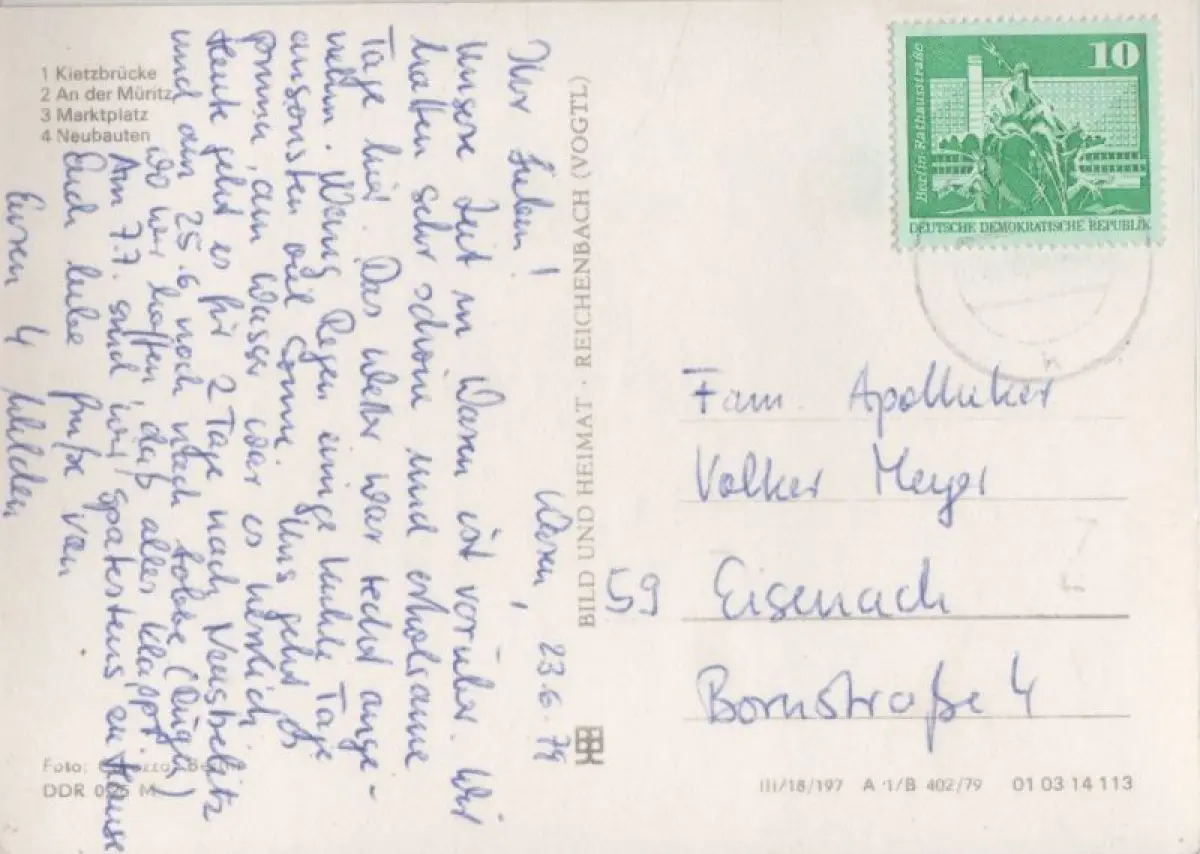 1 Kietzbrücke
2 An der Müritz
3 Marktplatz
4 Neubauten
Waren, 23.6.79
Ihr Lieben!
Unsere Zeit in Waren ist vorüber. Wir
hatten sehr schöne und erholsame
Tage hier. Das Wetter war recht ange-
nehm. Wenig Regen einige kühle Tage
ansonsten viel Sonne. Uns geht es
prima, am Wasser war es herrlich
Heute geht es für 2 Tage nach Neustrelitz
und am 25.6 noch nach (Rügen)
wo wir hoffen, daß alles klappt.
Am 7.7. sind wir spätestens zu Hause
Euch liebe Grüße von
Euren 4
BILD UND HEIMAT · REICHENBACH (VOGTL)
10
Berlin-Rathausstraße
DEUTSCHE DEMOKRATISCHE REPUBLIK
Fam. Apotheker
Volker Meyer
59 Eisenach
Bornstraße 4
Foto:
DDR 0,25 M
III/18/197 A 1/B 402/79 01 03 14 113